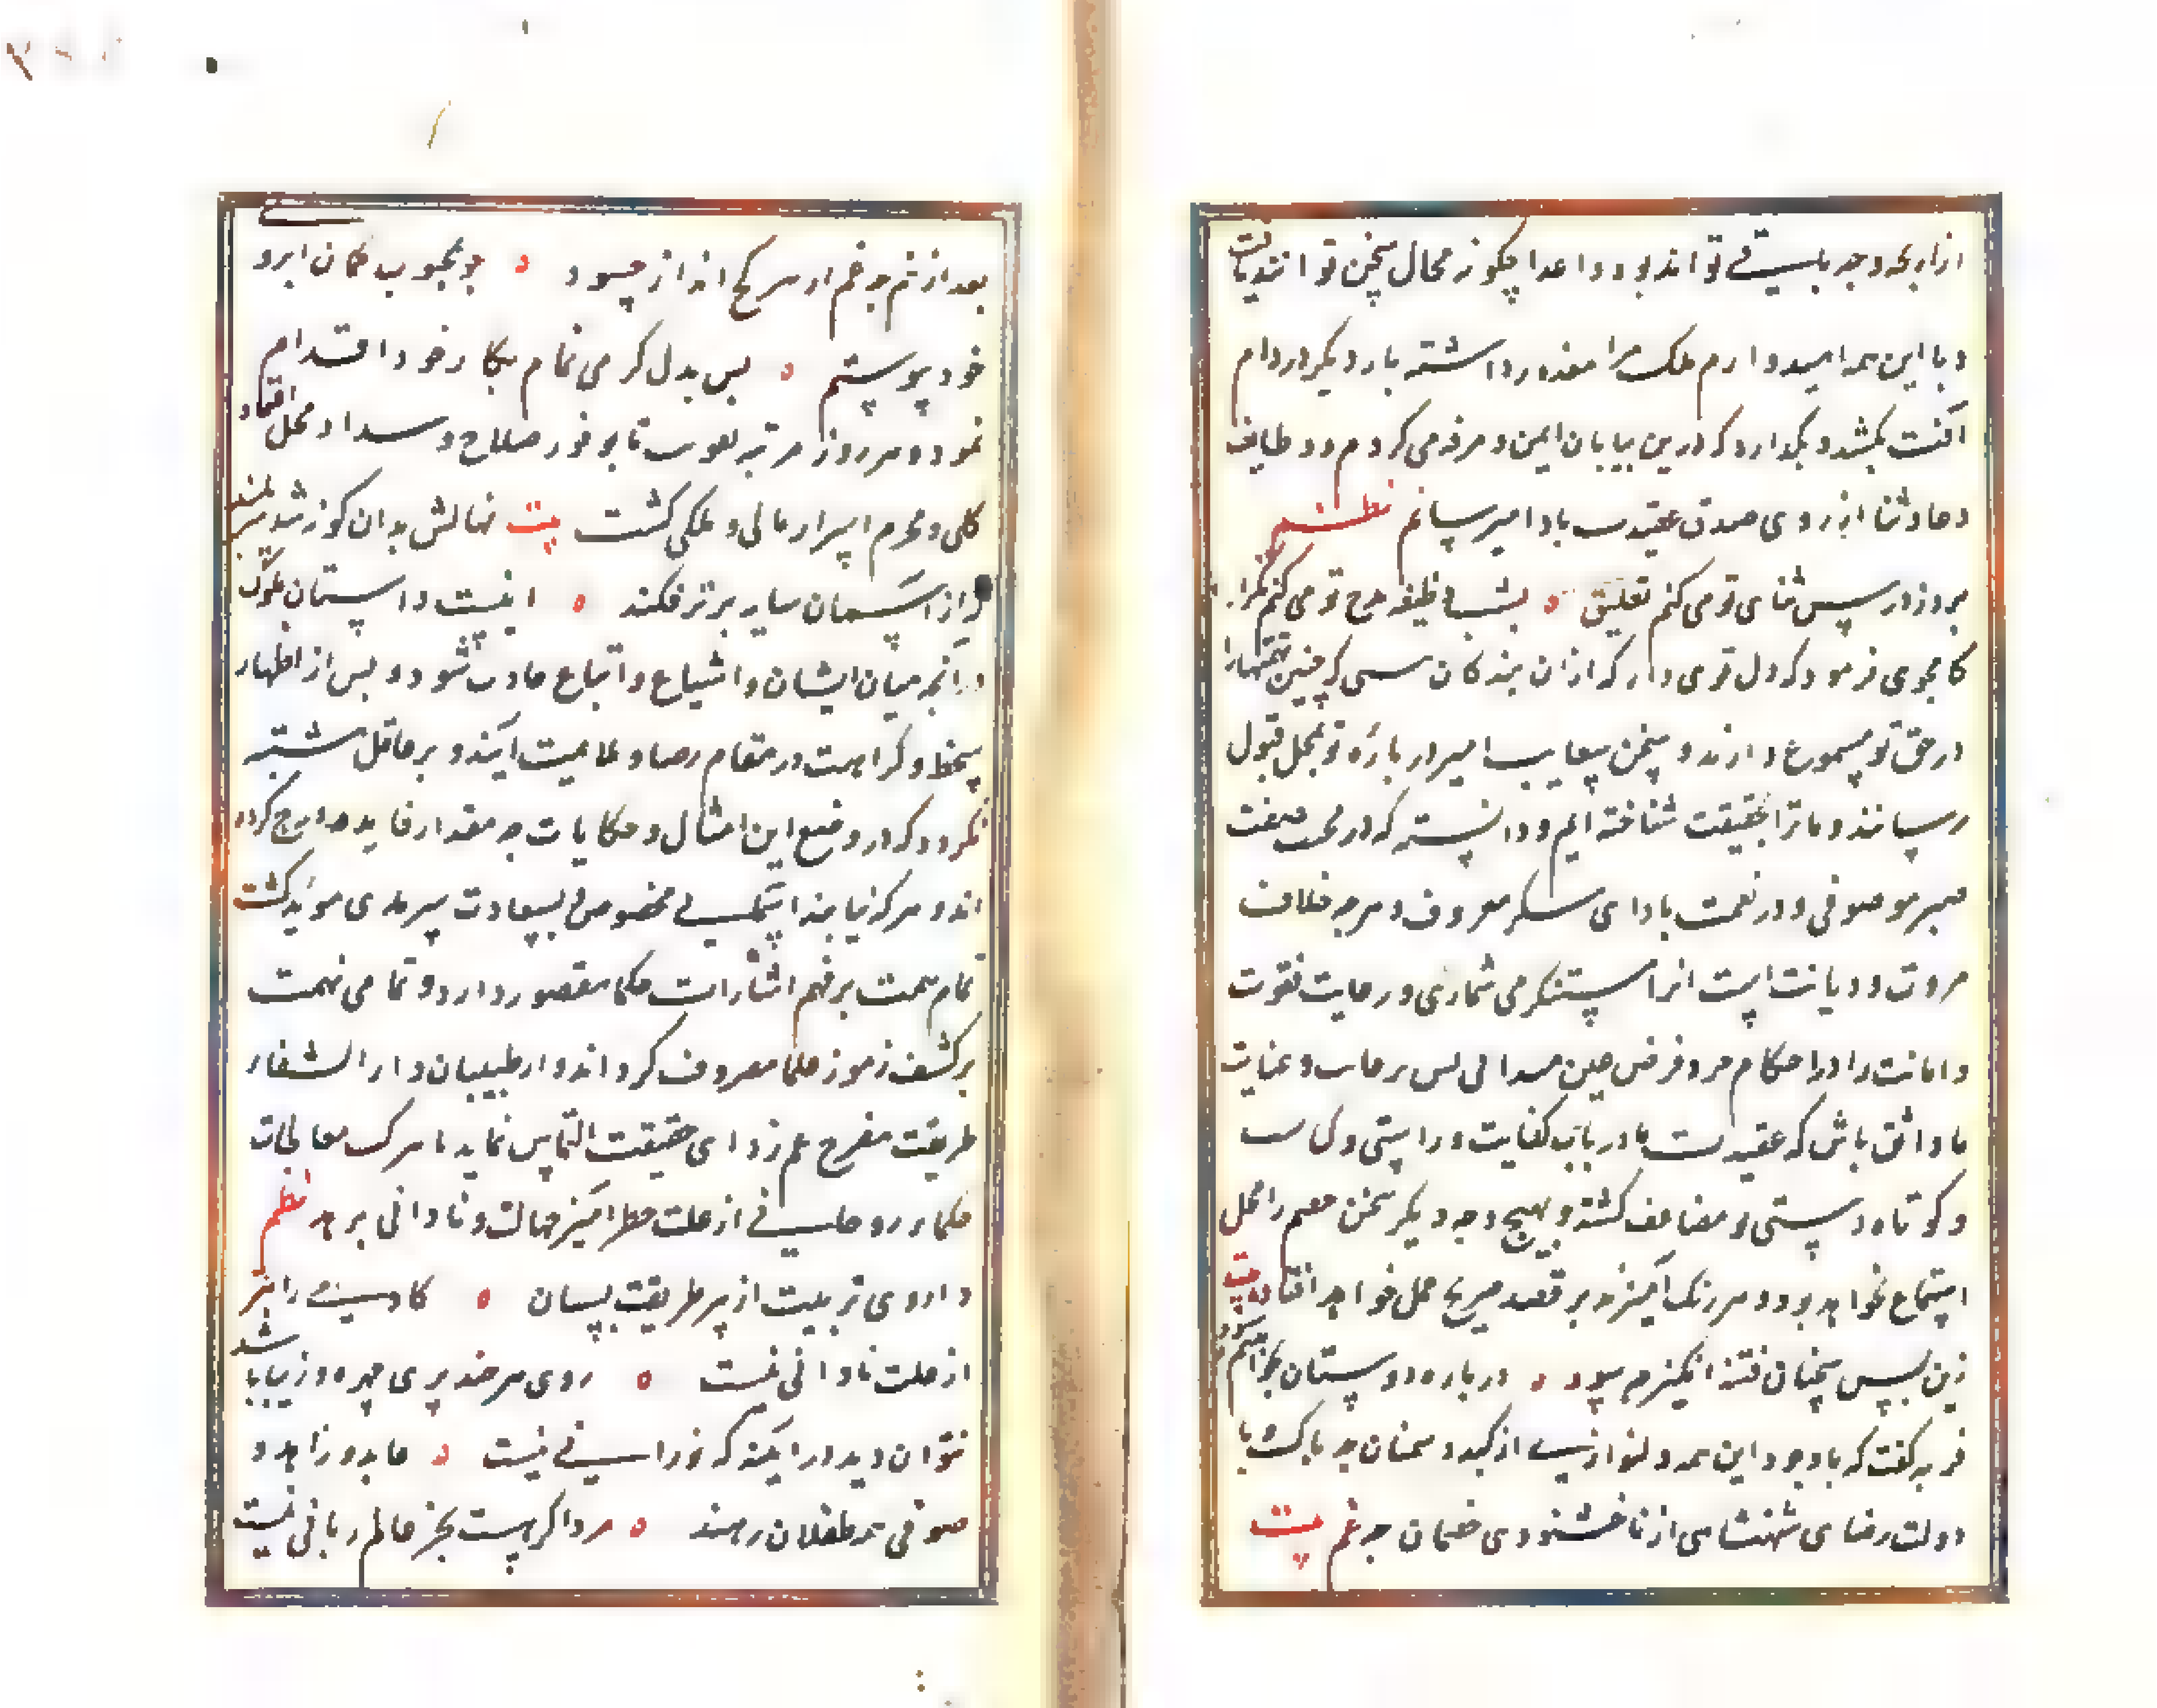 و با این همه امیدوارم ملک مرا معذور داشته بار دیکر در دام
آفت نکشد و بکذارد که درین بیابان ایمن و مرفه می کردم و وظایف
دعا و ثنا از روی صدق عقیدت بادا میرسانم نظم
بروز درس ثنای تو می کنم تعلیق بشب وظیفه مدح تو می کنم تکرار
کامجوی فرمود که دل قوی دار که از ان بندکان نیستی که چنین تهمتها
در حق تو مسموع دارند و سخن سعایت امیز در باره تو بمحل قبول
رسانند و ما ترا بحقیقت شناخته ایم و دانسته که در محنت بصفت
صبر موصوفی و در نعمت بادای شکر معروف و هر چه خلاف
مروت و دیانت است انرا مستنکر می شماری و رعایت فتوت
و امانت را در احکام مروت فرض عین میدانی پس برعایت و عنایت
ما واثق باش که عقیدت ما در باب کفایت و راستی
و کوتاه دستی تو مضاعف کشته و بهیچ وجه دیکر سخن خصم را محل
استماع نخواهد بود و هر رنک آمیزی که برد بر قصد صریح حمل خواهد افتاد بیت
زین پس سخنان فتنه انکیز چه سود در باره دوستان نخواهیم شنود
فریسه کفت که با وجود این همه دلنوازی از کید دشمنان چه باک و با
دولت رضای شهنشاهی از ناخشنودی خصمان چه غم بیت
بعد ازین چه غم از هر کج انداز حسود چو بمحبوب کمان ابرو
خود پیوستم پس بدل کرمی تمام بکار خود اقدام
نمود و هر روز مرتبه تقربش تا بوفور صلاح و سداد محل اعتماد
کلی و محرم اسرار مالی و ملکی کشت بیت نهالش بدان کونه شد سربلند
که از آسمان سایه برتر فکند اینست داستان ملوک
در آنچه میان ایشان و اشیاع و اتباع حادث شود و پس از اظهار
سخط و کراهت در مقام رضا و عاطفت آیند و بر عاقل مشتبه
نکردد که در وضع این امثال و حکایات چه مقدار فواید مدرج کرده
اند و هر که بتایید آسمانی مخصوص و بسعادت سرمدی موید کشت
تمام همت بر فهم اشارات حکما مقصور دارد و تمامی نهمت
بر کشف رموز علما معروف کرداند و از طبیبان دار الشفاء
طریقت مفرح غم زدای حقیقت التماس نماید تا ببرکت معالجات
حکماء روحانی از علت خطر آمیز جهالت و نادانی برهد نظم
داروی تربیت از پیر طریقت بستان کادمی را بتر
از علت نادانی نیست روی هر چند پری چهره و زیبا باشد
نتوان دید در آینه که نورانی نیست عابد و زاهد و
صوفی همه طفلان رهند مرد اکر هست بجز عالم ربانی نیست